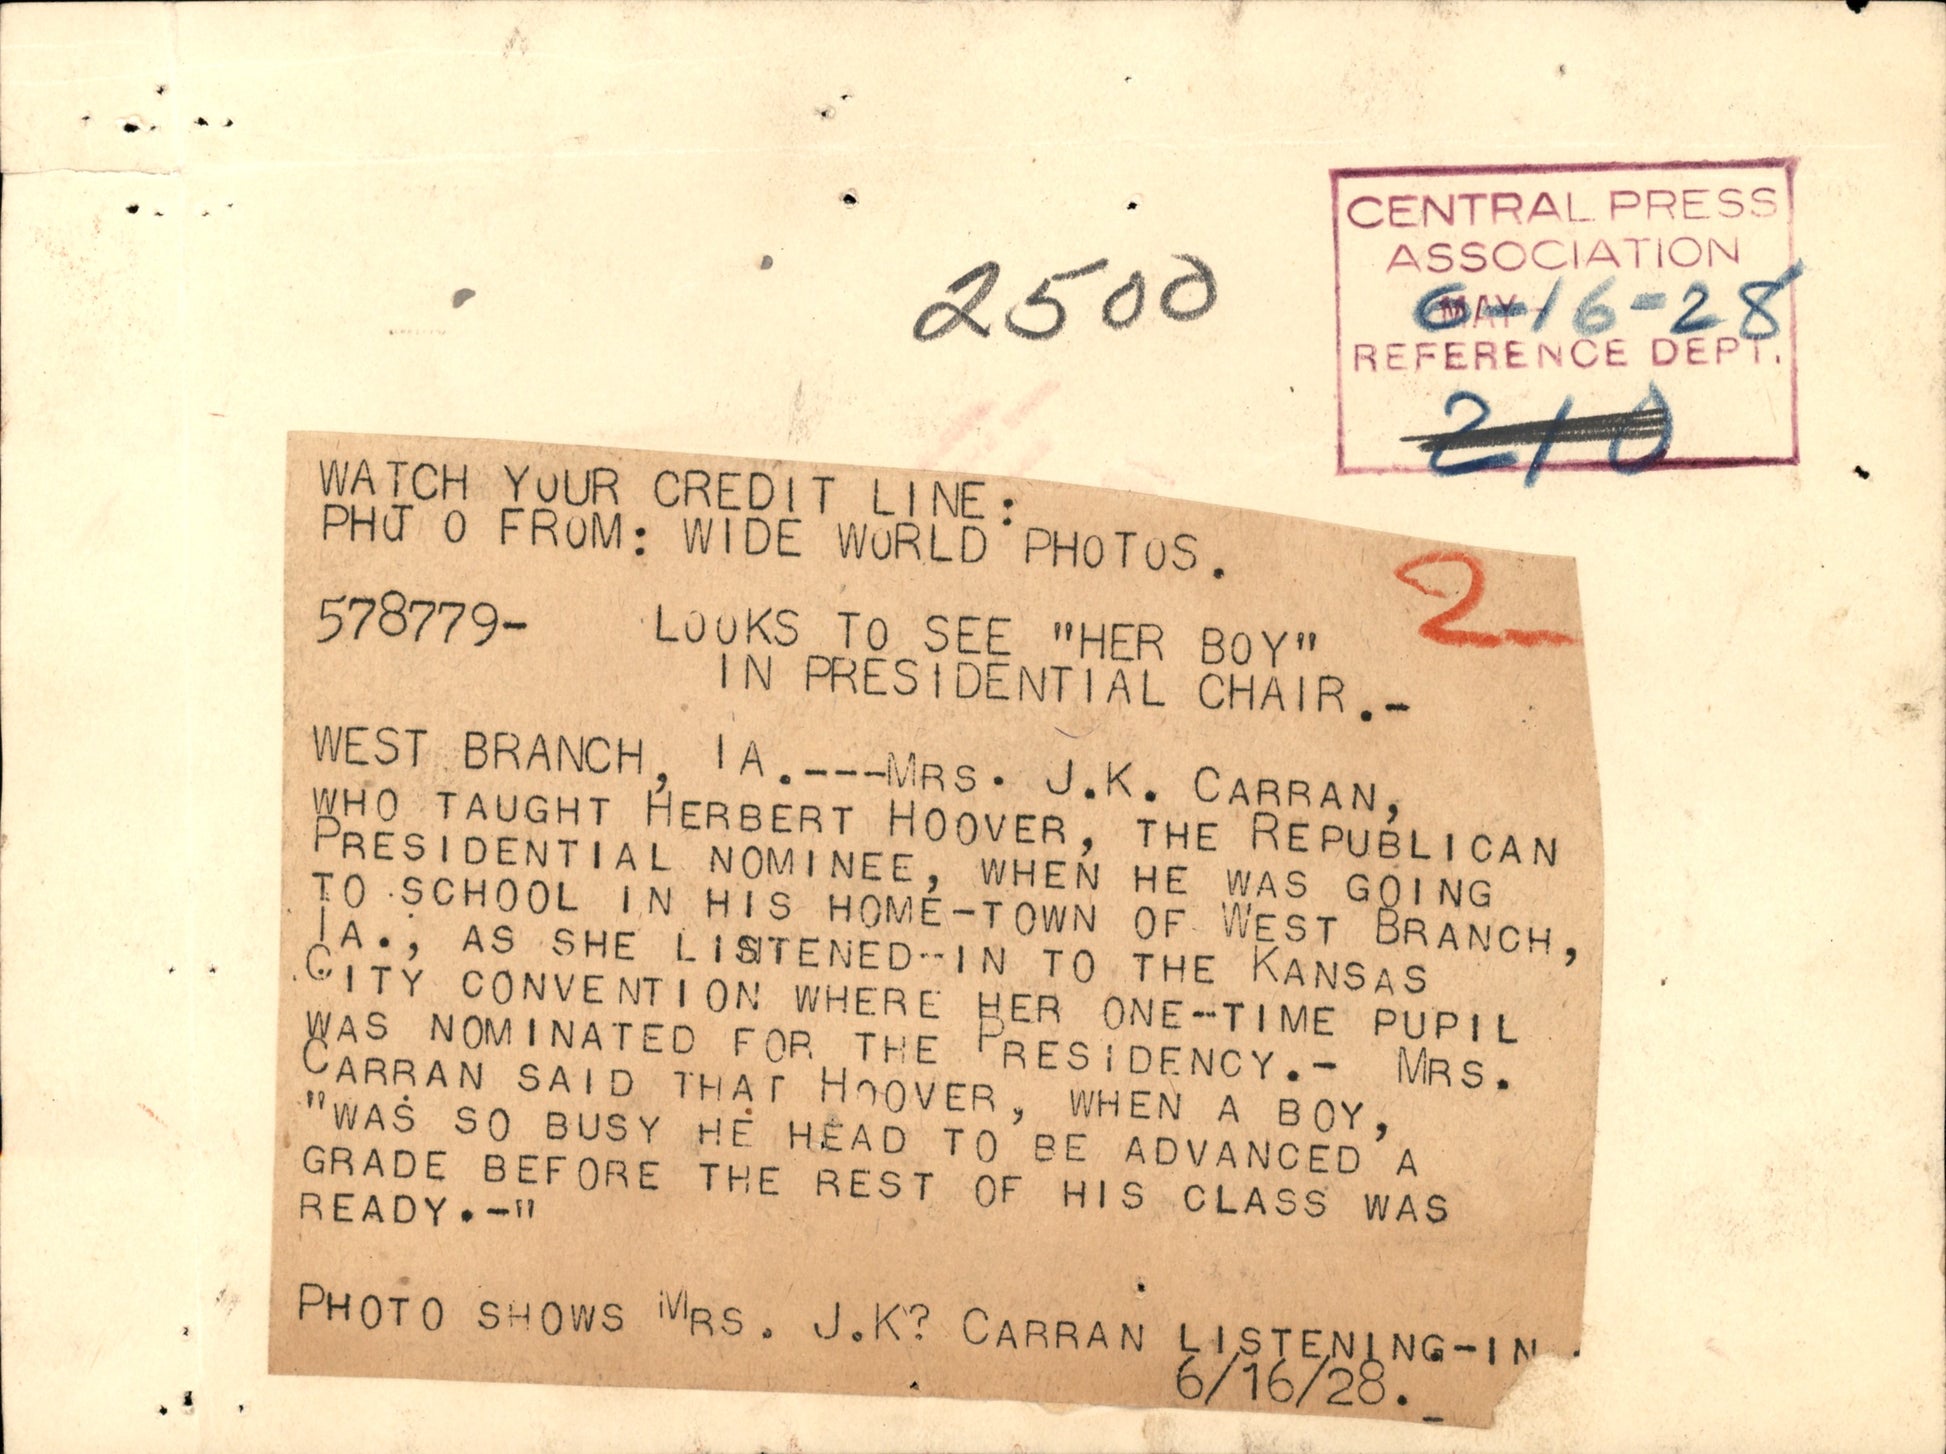 2500
CENTRAL PRESS
ASSOCIATION
MAY
6-16-28
REFERENCE DEPT.
210
WATCH YOUR CREDIT LINE:
PHOTO FROM: WIDE WORLD PHOTOS.
2
578779- LOOKS TO SEE "HER BOY"
IN PRESIDENTIAL CHAIR.-
WEST BRANCH, IA.---MRS. J.K. CARRAN,
WHO TAUGHT HERBERT HOOVER, THE REPUBLICAN
PRESIDENTIAL NOMINEE, WHEN HE WAS GOING
TO SCHOOL IN HIS HOME-TOWN OF WEST BRANCH,
IA., AS SHE LISTENED-IN TO THE KANSAS
CITY CONVENTION WHERE HER ONE-TIME PUPIL
WAS NOMINATED FOR THE PRESIDENCY.- MRS.
CARRAN SAID THAT HOOVER, WHEN A BOY,
"WAS SO BUSY HE HEAD TO BE ADVANCED A
GRADE BEFORE THE REST OF HIS CLASS WAS
READY.-"
PHOTO SHOWS MRS. J.K? CARRAN LISTENING-IN.
6/16/28.